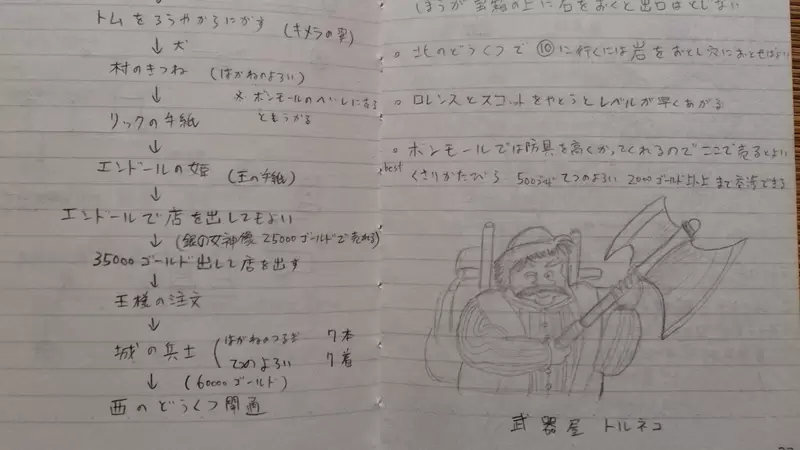 トムをろうやからにがす (キメラの翼)
↓ 犬
村のきつね (はがねのよろい)
↓ ※ ボンモールのへいしにうる
ともうかる
リックの手紙
↓
エンドールの姫 (王の手紙)
↓
エンドールで店を出してもよい
↓ (銀の女神像 25000ゴールドで売れる)
35000ゴールド出して店を出す
↓
王様の注文
↓
城の兵士 (はがねのつるぎ 7本
てつのよろい 7着
↓ (60000ゴールド)
西のどうくつ開通
ほうが宝箱の上に石をおくと出口はとじない
○ 北のどうくつで ⑩に行くには岩をおとし穴におとせばよい
○ ロレンスとスコットをやとうとレベルが早くあがる
○ ボンモールでは防具を高くかってくれるのでここで売るとよい
best くさりかたびら 500ゴールド てつのよろい 2000ゴールド以上まで交渉できる
武器屋 トルネコ